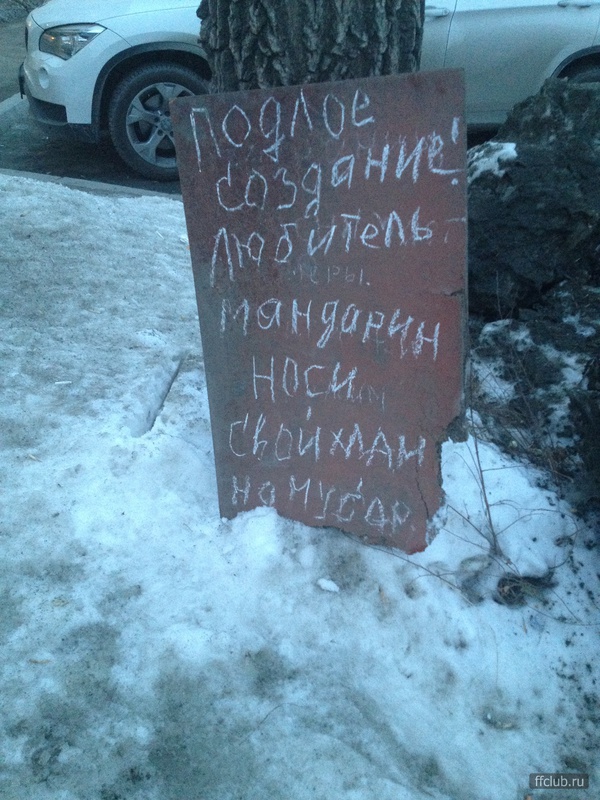 подлое
создание!
любитель
меры.
мандарин
носи
свой хлам
на мусор.
ffclub.ru